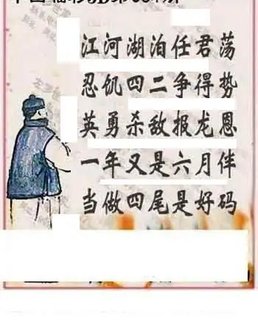 江河湖泊任君荡
忍饥四二争得势
英勇杀敌报龙恩
一年又是六月伴
当做四尾是好码